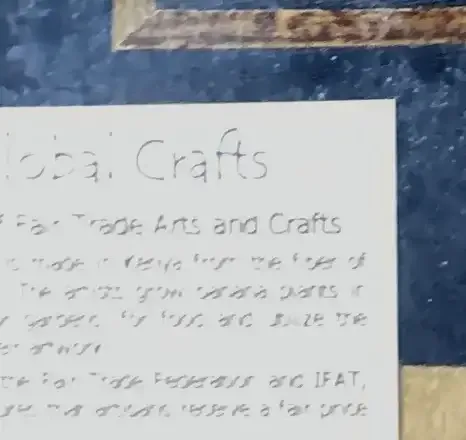 lobal Crafts
f Fair Trade Arts and Crafts
is made in Kenya from the fiber of
The artists grow banana plants in
gardens for food and utilize the
artwork
the Fair Trade Federation and IFAT,
that artisans receive a fair price